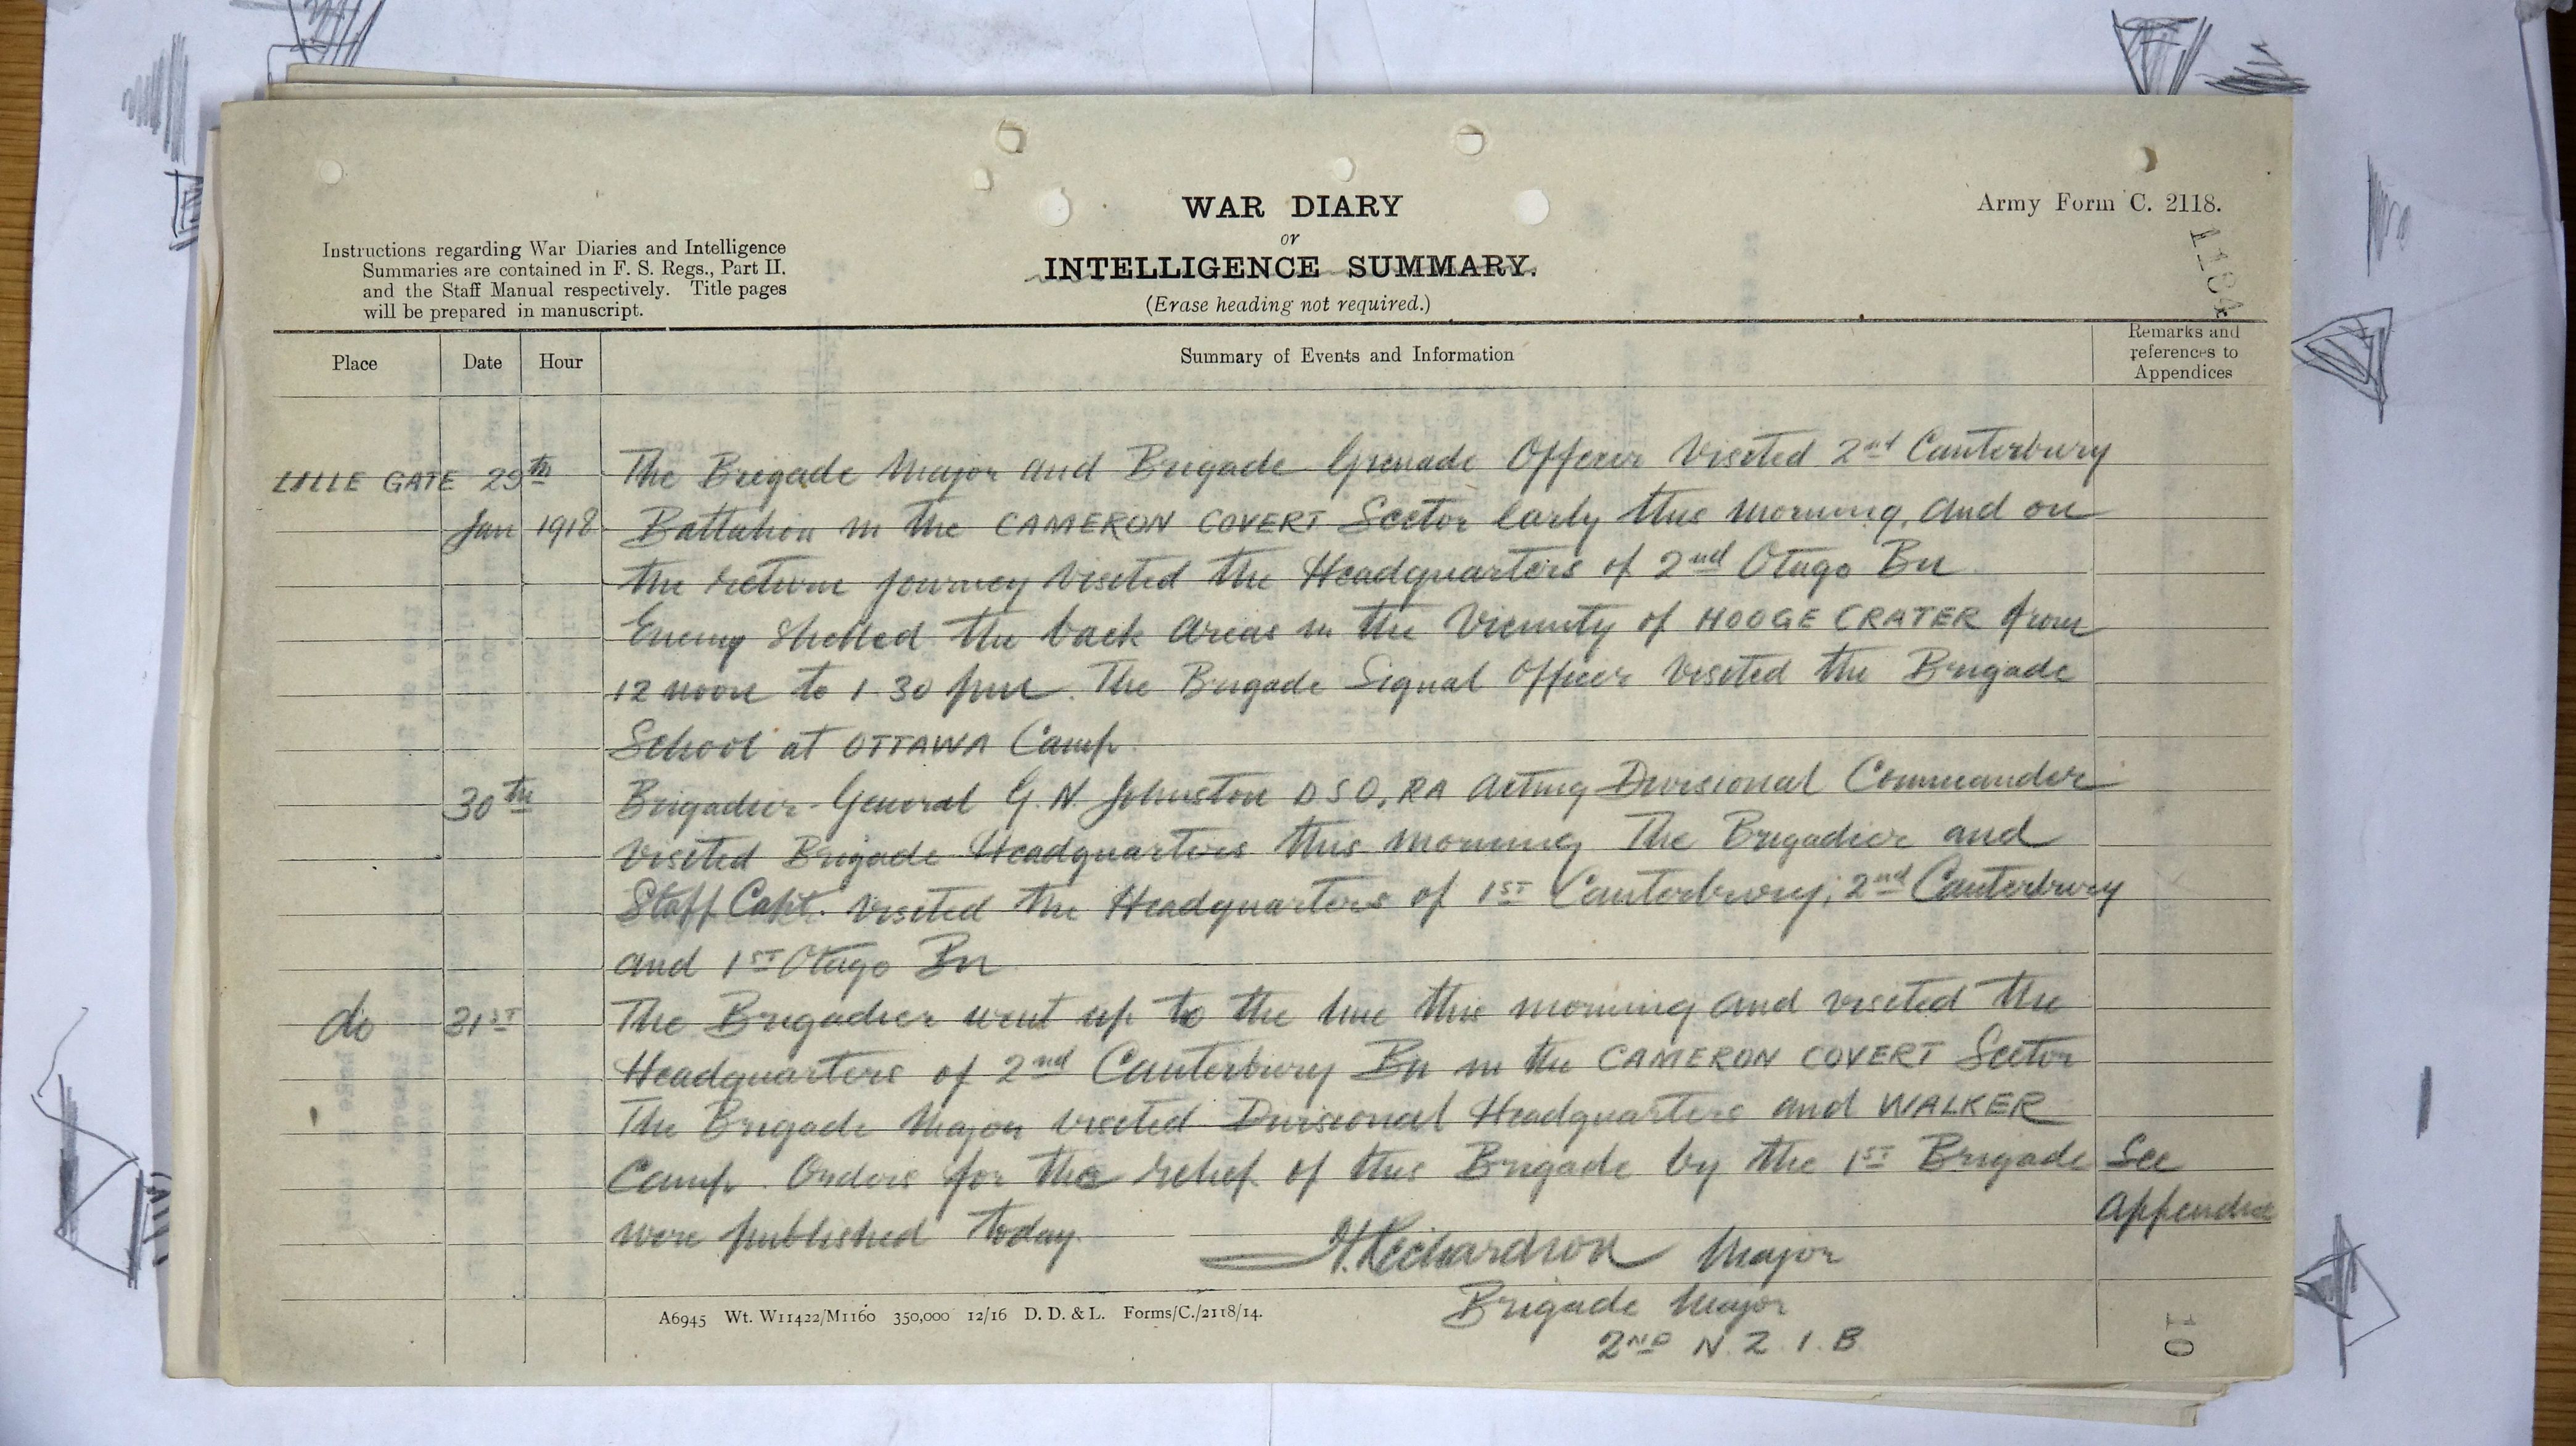 WAR DIARY
or
INTELLIGENCE SUMMARY.
(Erase heading not required.)
Army Form C. 2118.
1184
Instructions regarding War Diaries and Intelligence
Summaries are contained in F. S. Regs., Part II.
and the Staff Manual respectively. Title pages
will be prepared in manuscript.
Place Date Hour Summary of Events and Information Remarks and references to Appendices
LILLE GATE 29th The Brigade Major and Brigade Grenade Officer visited 2nd Canterbury
Jan 1918 Battalion in the CAMERON COVERT Sector early this morning, and on
the return journey visited the Headquarters of 2nd Otago Bn
Enemy shelled the back areas in the vicinity of HOOGE CRATER from
12 noon to 1.30 pm. The Brigade Signal Officer visited the Brigade
School at OTTAWA Camp.
30th Brigadier-General G. N. Johnston DSO, RA Acting Divisional Commander
visited Brigade Headquarters this morning The Brigadier and
Staff Capt. visited the Headquarters of 1ST Canterbury, 2nd Canterbury
and 1ST Otago Bn
do 31ST The Brigadier went up to the line this morning and visited the
Headquarters of 2nd Canterbury Bn in the CAMERON COVERT Sector
The Brigade Major visited Divisional Headquarters and WALKER
Camp. Orders for the relief of this Brigade by the 1ST Brigade See
were published today Appendix
H. Richardson Major
Brigade Major
2ND N. Z. I. B.
A6945 Wt. W11422/M1160 350,000 12/16 D. D. & L. Forms/C./2118/14.
10